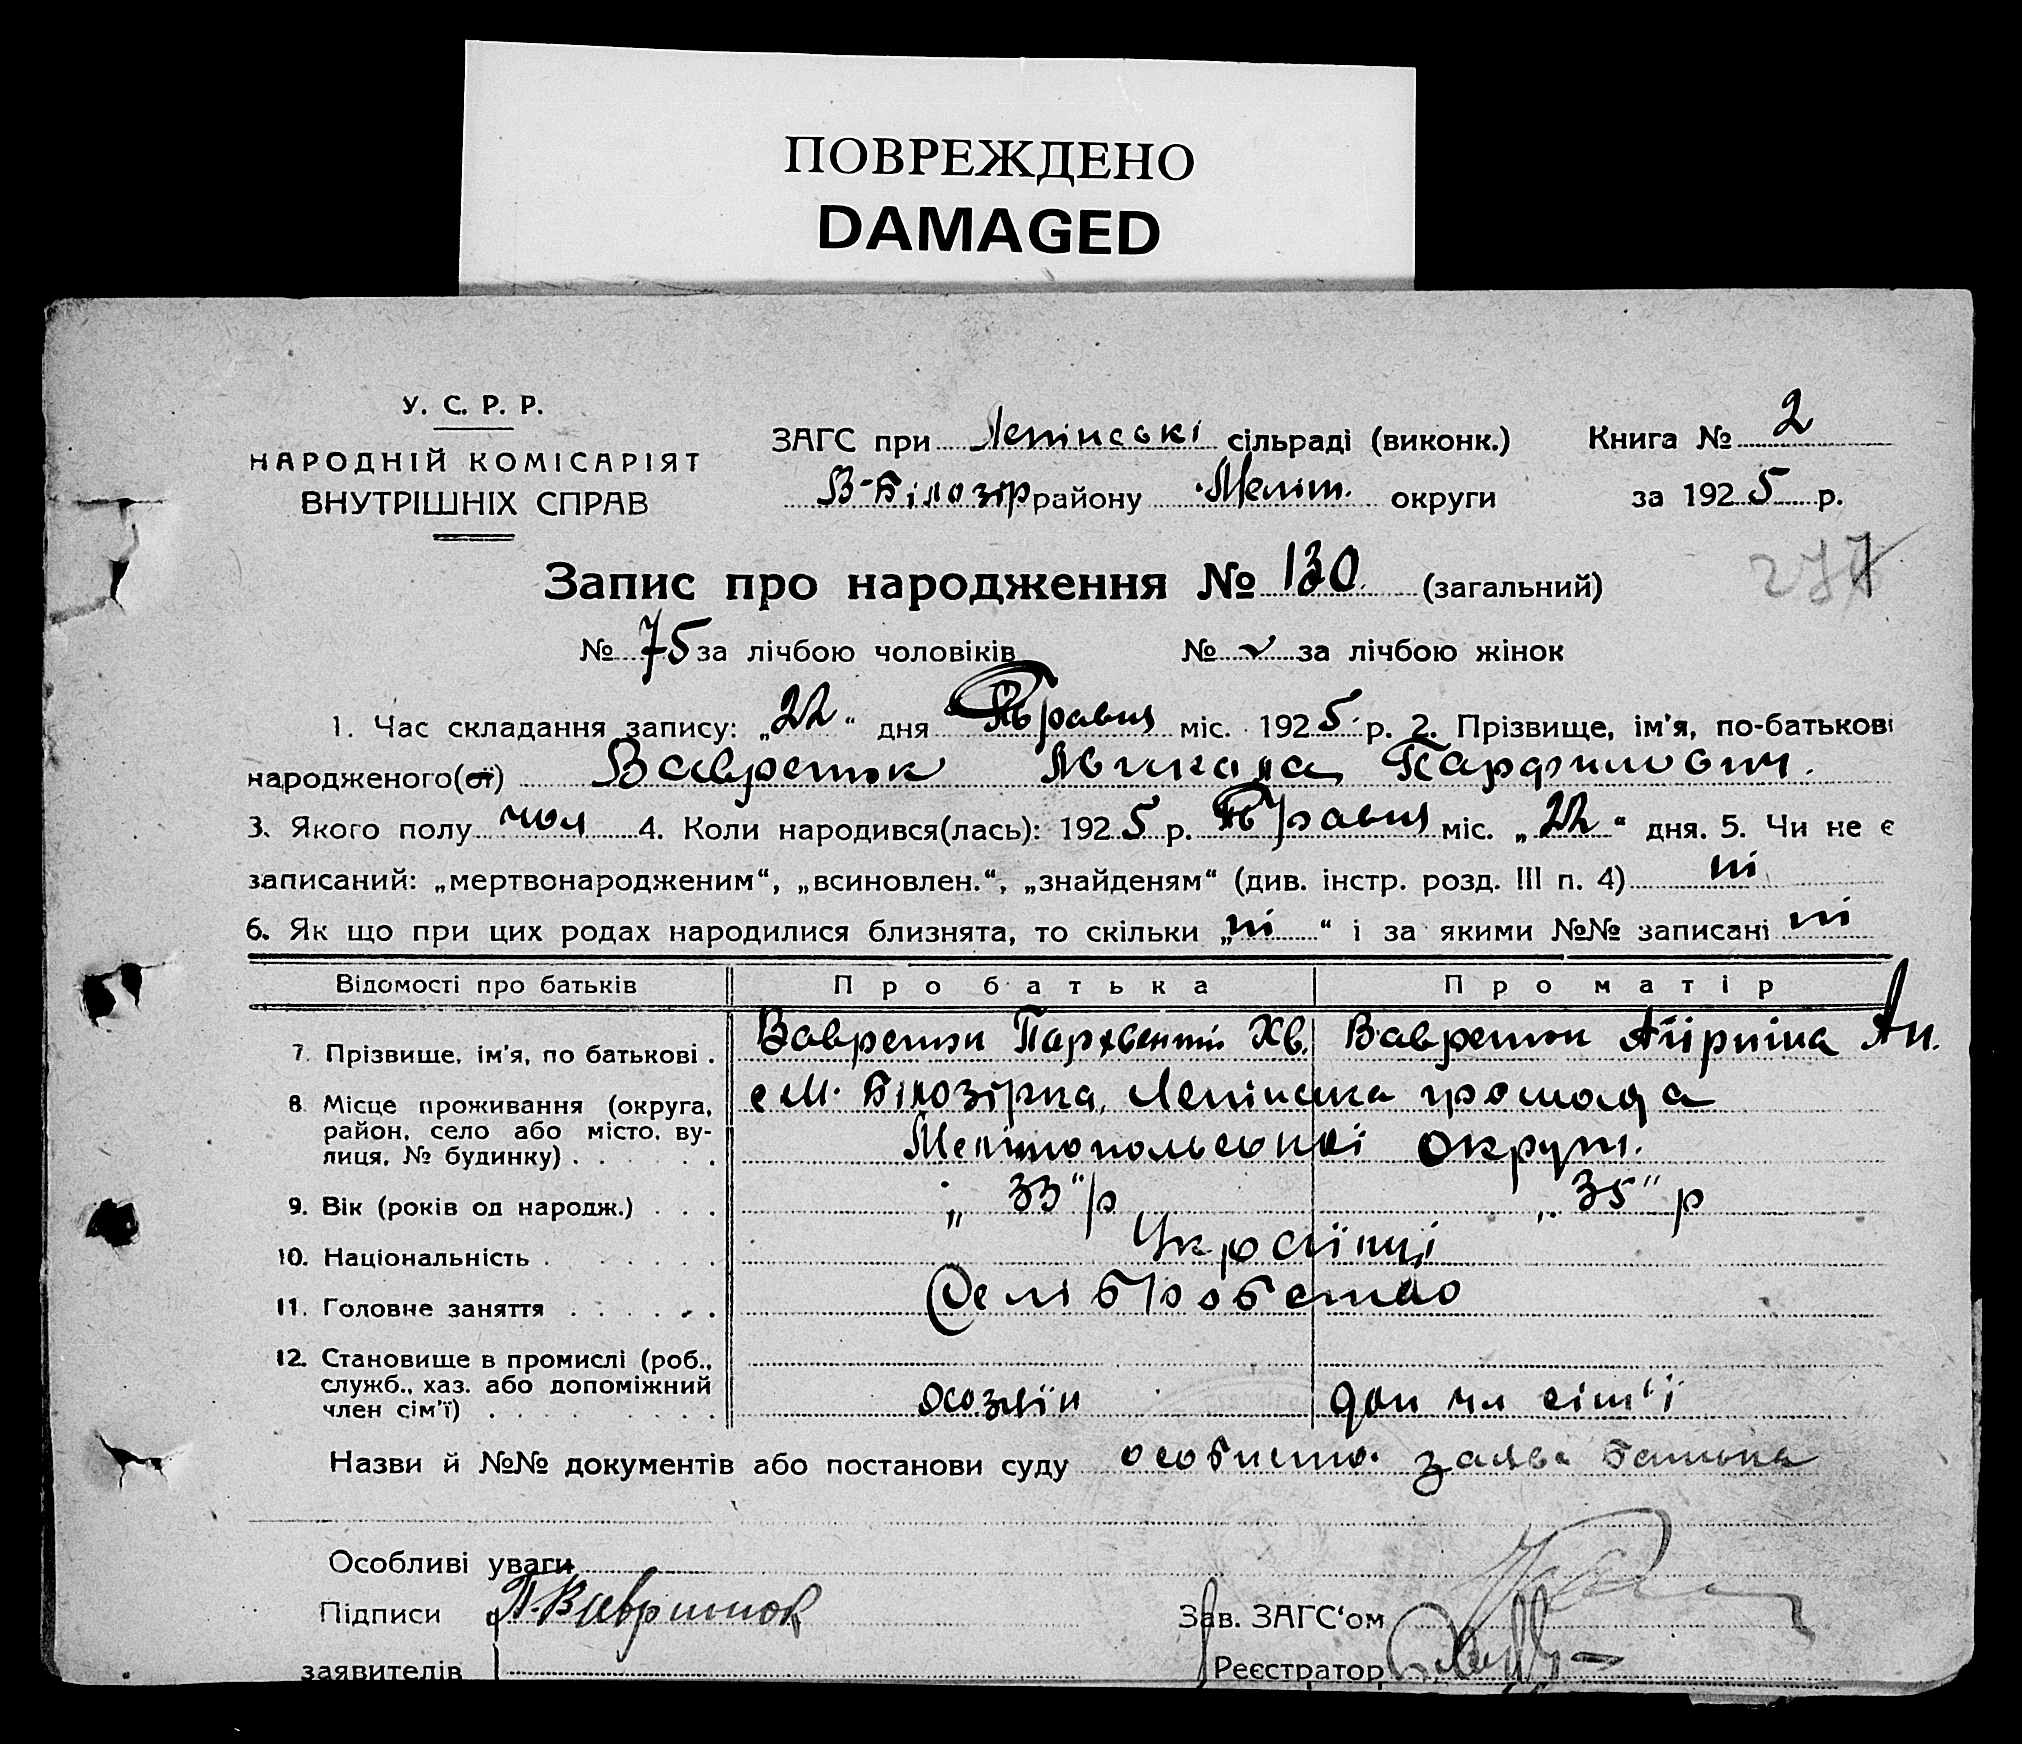 ПОВРЕЖДЕНО
DAMAGED
У. С. Р. Р.
НАРОДНІЙ КОМІСАРІЯТ
ВНУТРІШНІХ СПРАВ
ЗАГС при Ленінські сільраді (виконк.)
В-Білозір району Меліт. округи
Книга № 2
за 1925 р.
Запис про народження № 130 (загальний)
277
№ 75 за лічбою чоловіків № за лічбою жінок
1. Час складання запису: „22“ дня Травня міс. 1925 р. 2. Прізвище, ім'я, по-батькові
народженого(ої) Вавретюк Микола
3. Якого полу чол 4. Коли народився(лась): 1925 р. Травня міс. „22“ дня. 5. Чи не є
записаний: „мертвонародженим“, „всиновлен.“, „знайденям“ (див. інстр. розд. III п. 4) ні
6. Як що при цих родах народилися близнята, то скільки „ні“ і за якими №№ записані ні
Відомості про батьків Про батька Про матір
7. Прізвище, ім'я, по батькові . Вавретюк Пархвентій Хв. Вавретюк Ан.
8. Місце проживання (округа, район, село або місто, вулиця, № будинку) . . . . . с М. Білозірка, Ленінська громада
Мелітопольської округи.
9. Вік (років од народж.) . . . „33“ р „35“ р
10. Національність . . . . . . Українці
11. Головне заняття . . . . . . Сельробство
12. Становище в промислі (роб., служб., хаз. або допоміжний член сім'ї) . . . . . . . хозяїн доп чл сім'ї
Назви й №№ документів або постанови суду особиста заява батька
Особливі уваги
Підписи П. Вавринюк
заявителів
Зав. ЗАГС'ом
Реєстратор